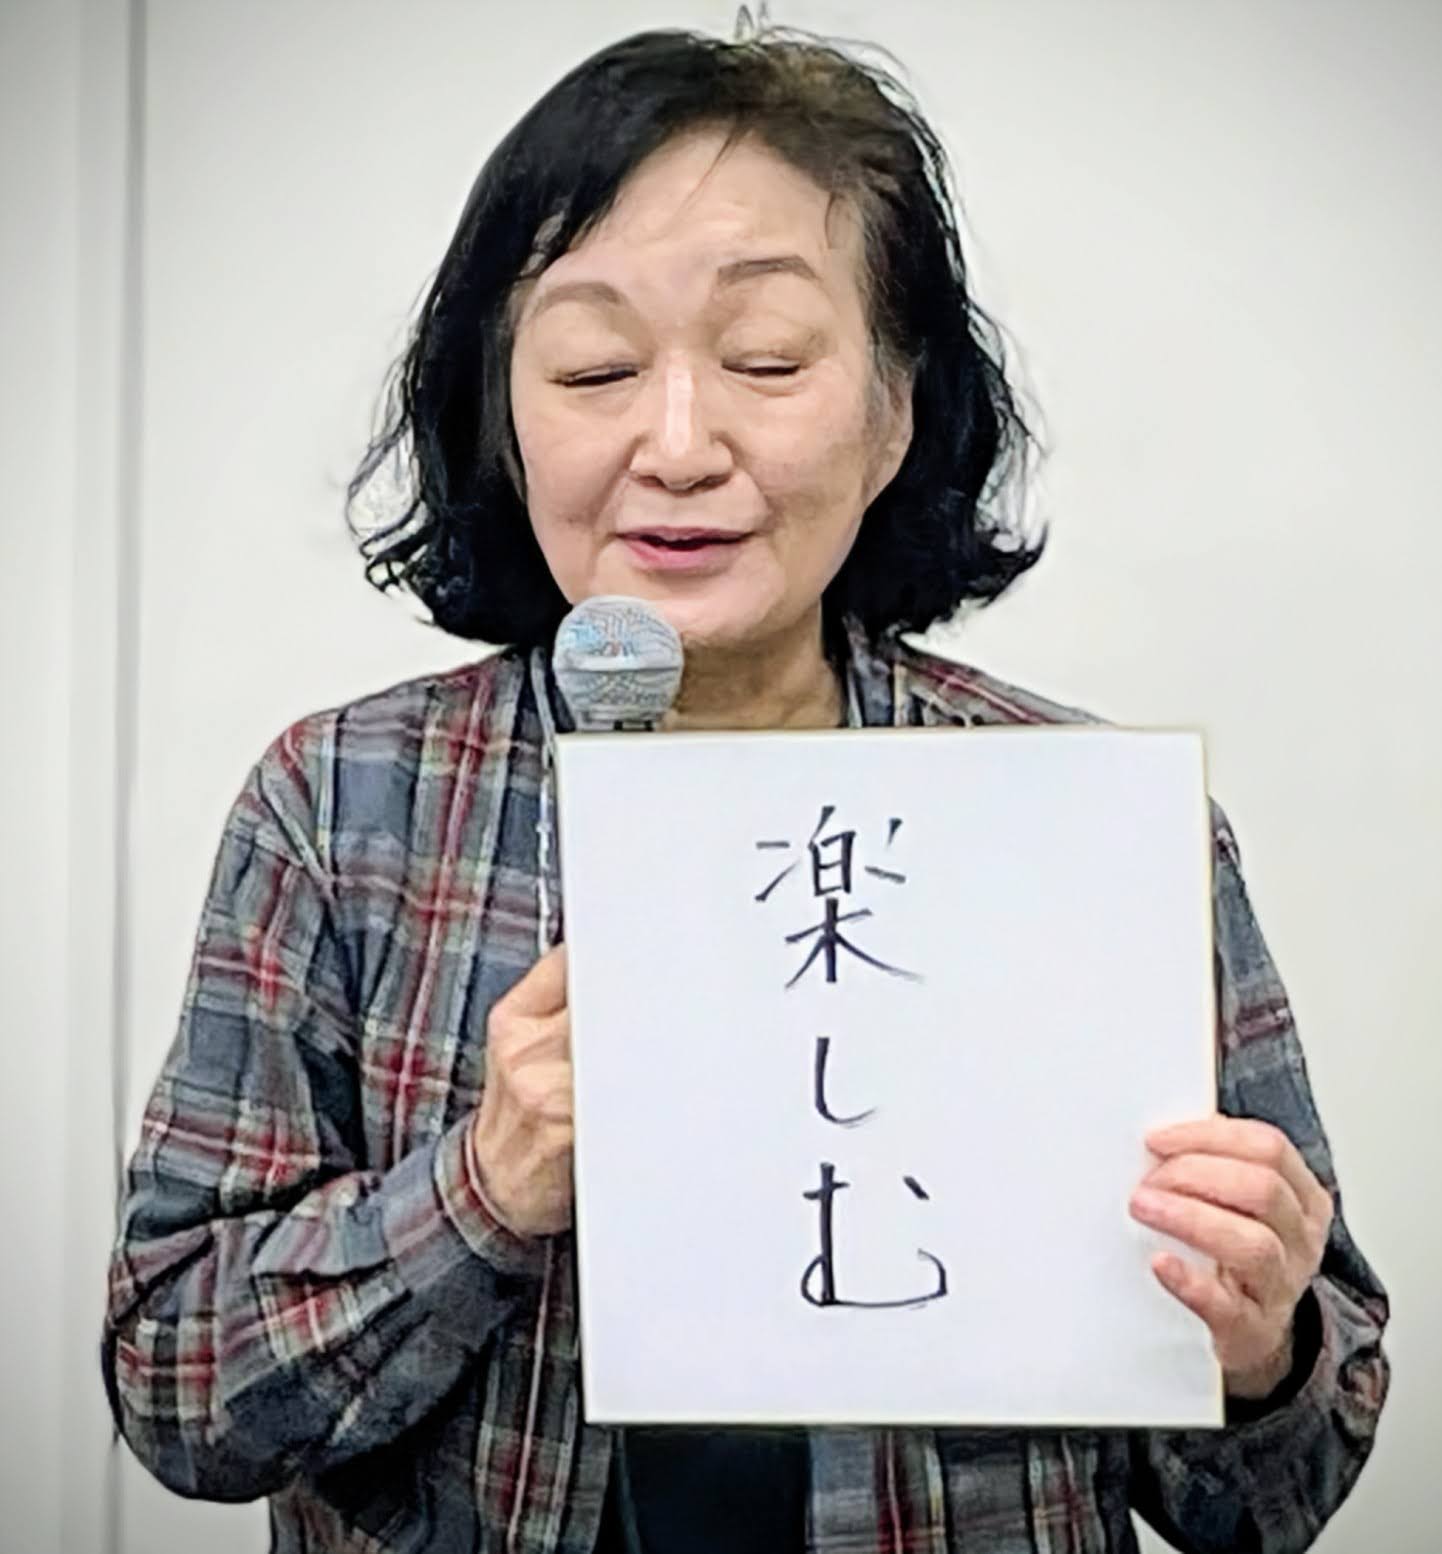 楽しむ